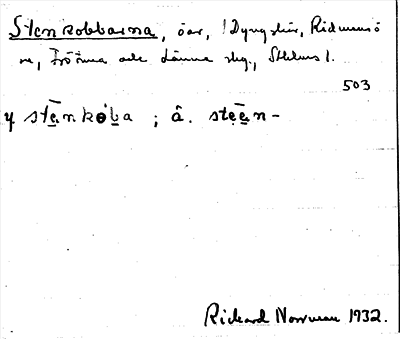 Stenkobbarna, öar, 1 Dyngskär, Ridmansö
m, Frötuna och Länna skg., Sthlms l.
503
y stēnkoba ; â. steēn-
Richard Norrman 1932.